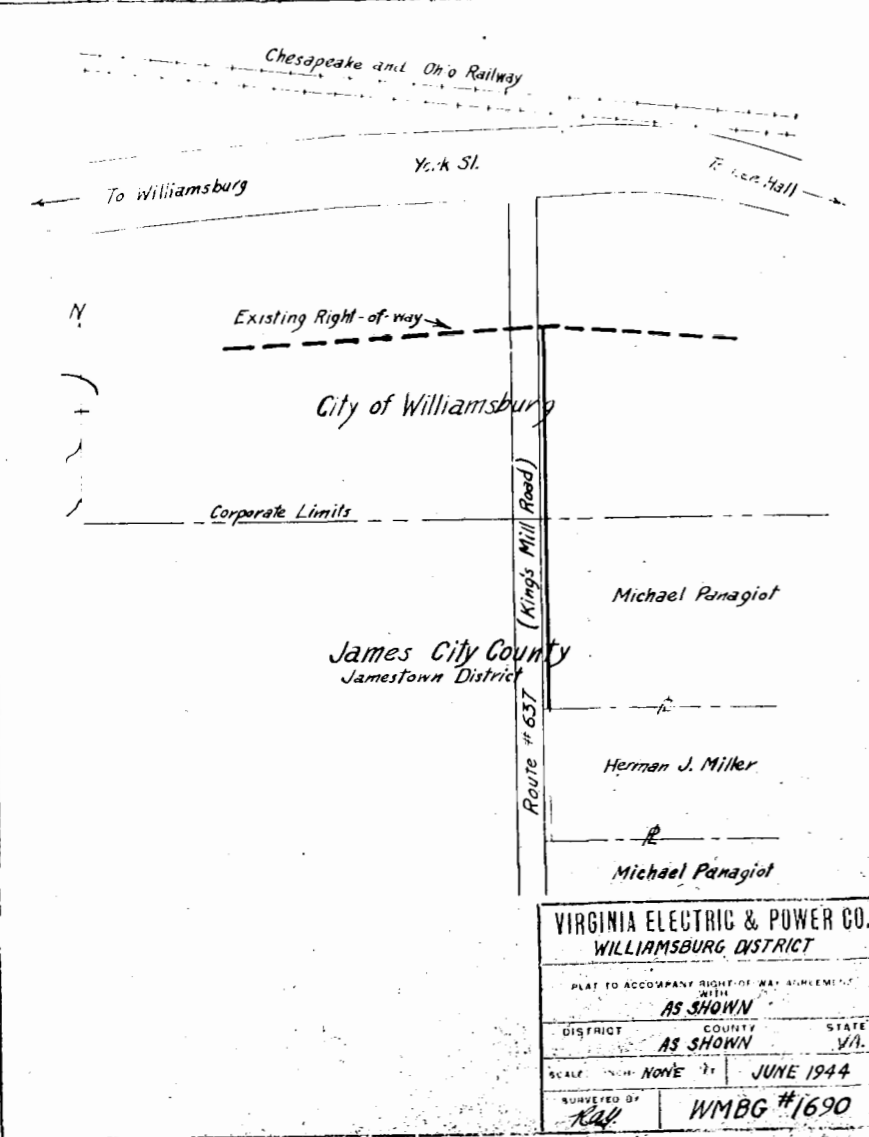 Chesapeake and Ohio Railway
York St.
To Williamsburg
To Lee Hall
N
Existing Right-of-way
City of Williamsburg
Corporate Limits
(King's Mill Road)
Michael Panagiot
James City County
Jamestown District
Route #637
Herman J. Miller
Michael Panagiot
VIRGINIA ELECTRIC & POWER CO.
WILLIAMSBURG DISTRICT
PLAT TO ACCOMPANY RIGHT-OF-WAY AGREEMENT
WITH
AS SHOWN
DISTRICT COUNTY STATE
AS SHOWN VA.
SCALE INCH NONE FT JUNE 1944
SURVEYED BY
Ray WMBG #1690